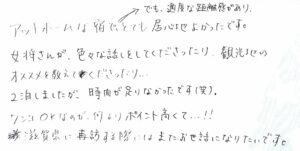 でも、適度な距離感があり、
アットホームな宿で、とても居心地よかったです。
女将さんが、色々な話しをしてくださったり、観光地の
オススメを教えてくださったり...
2泊しましたが、時間が足りなかったです(笑)。
ワンコOKなのが、何よりポイント高くて...!!
滋賀県に再訪する際にはまたお世話になりたいです。